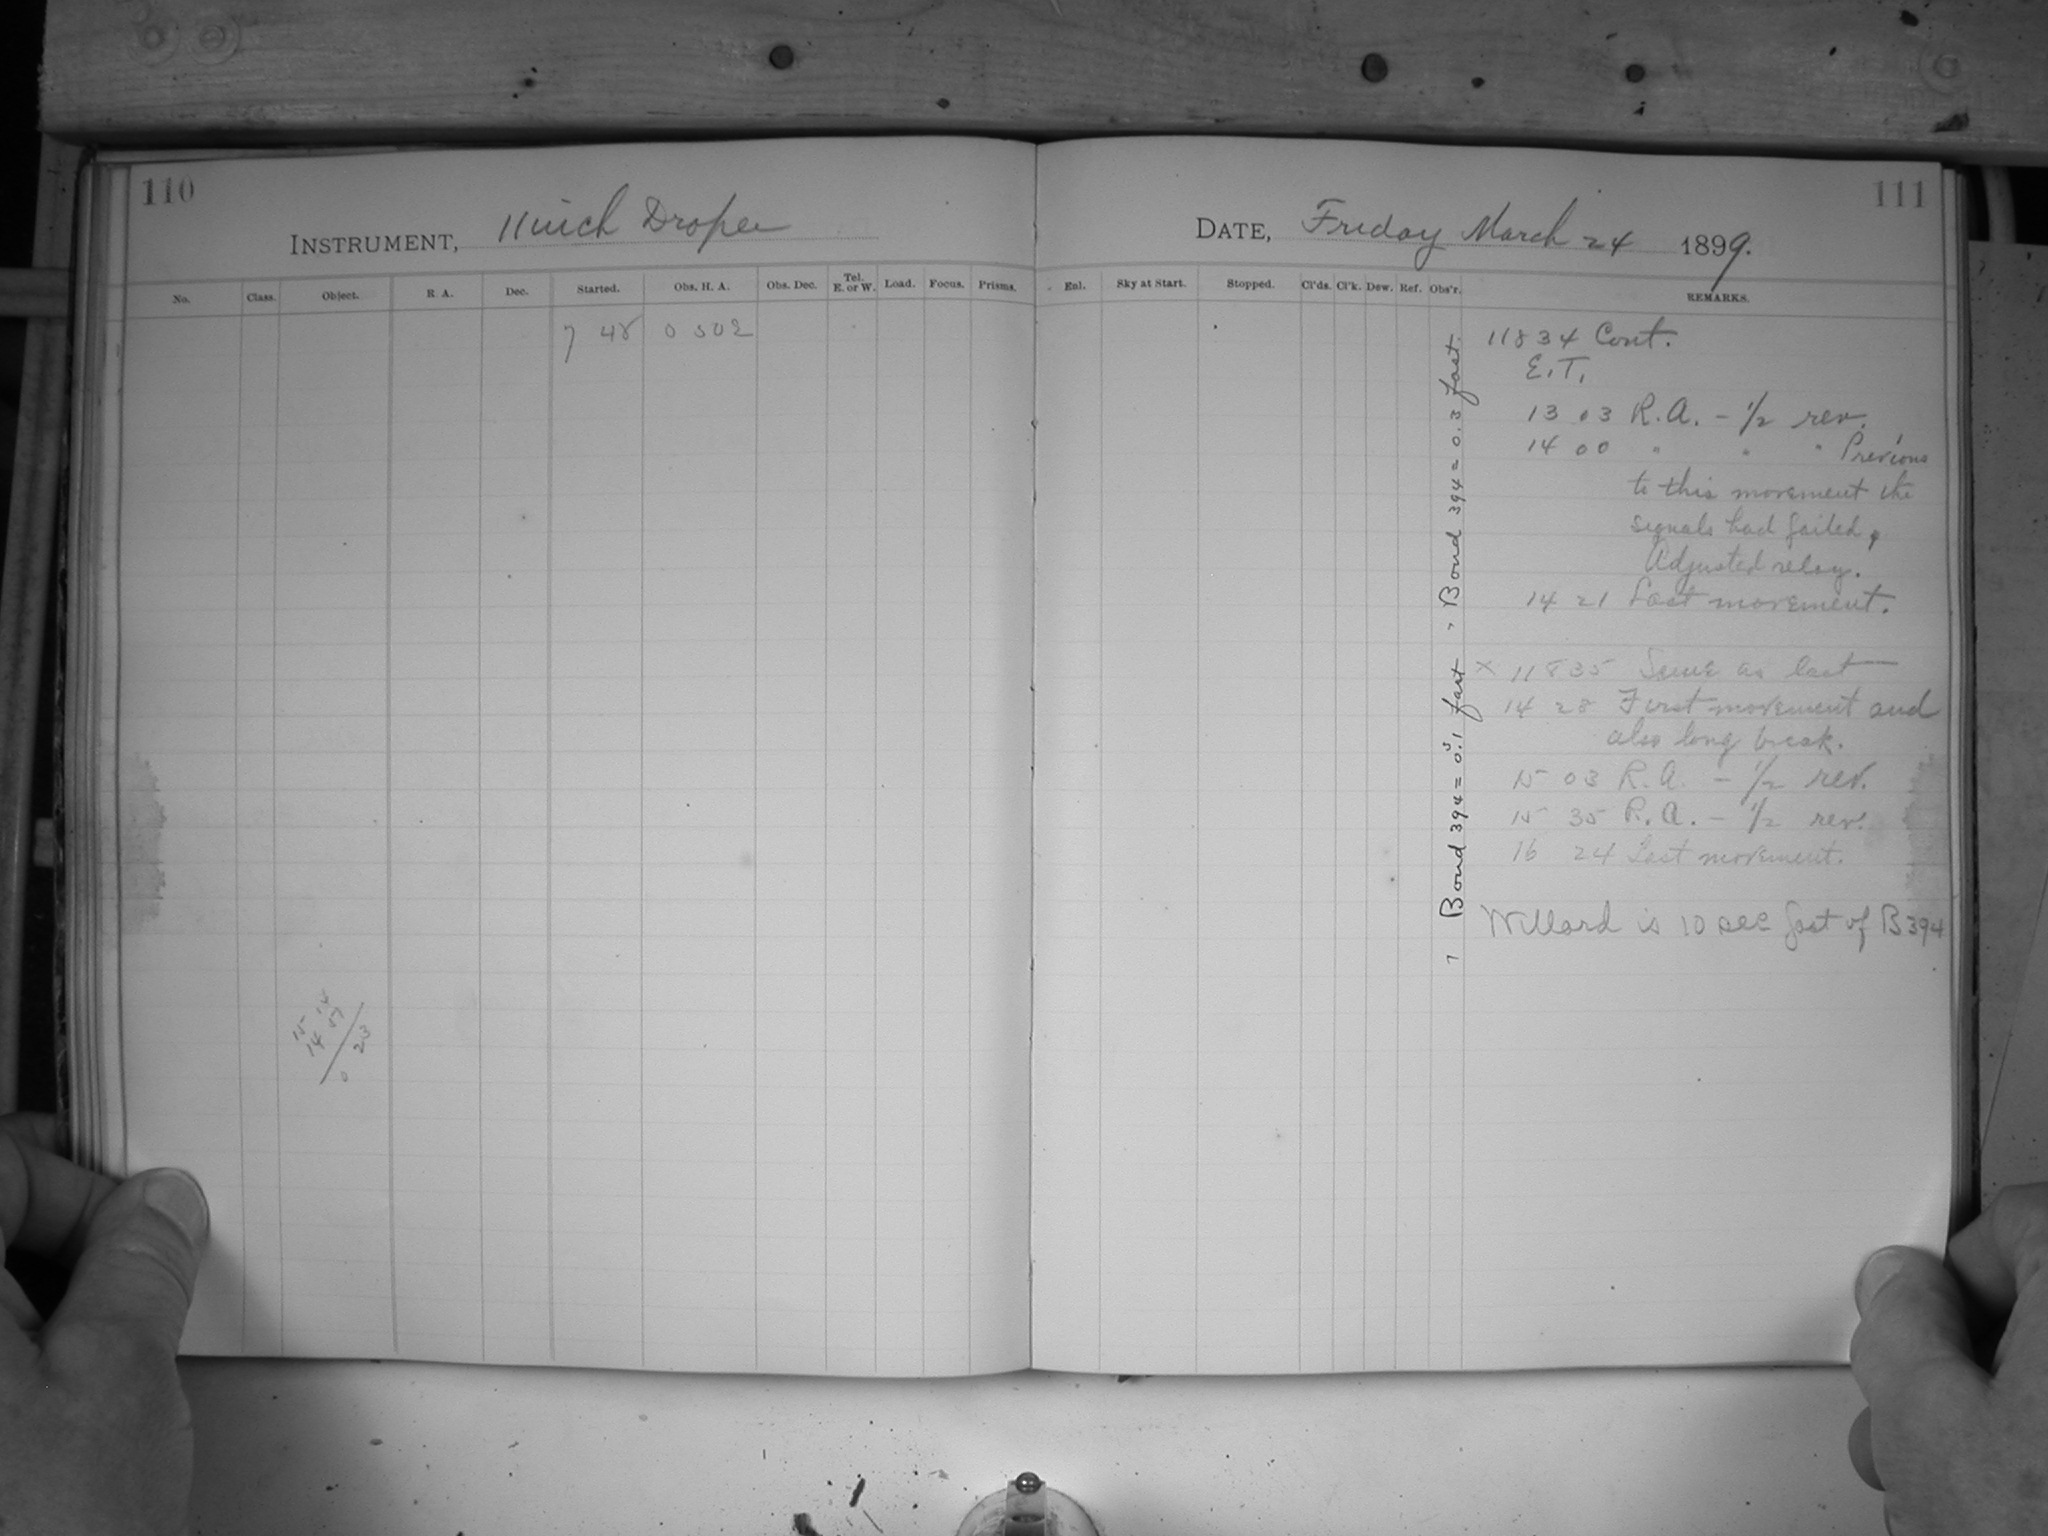 110
INSTRUMENT, 11 inch Draper
No. Class. Object. R A. Dec. Started. Obs. H. A. Obs. Dec. Tel. E. or W. Load. Focus. Prisms.
7 48 0 502
15 14
14 51
0 23
111
DATE, Friday March 24 1899.
Enl. Sky at Start. Stopped. Cl'ds. Cl'k. Dew. Ref. Obs'r. REMARKS.
11834 Cont.
E.T.
13 03 R.A. - 1/2 rev.
14 00 " " " Previous
to this movement the
signals had failed,
Adjusted relay.
14 21 Last movement.
x 11835 Same as last
14 28 First movement and
also long break.
15 03 R.A. - 1/2 rev.
15 35 R.A. - 1/2 rev.
16 24 Last movement.
Willard is 10 sec fast of B394
Bond 394 = 0.1 fast
Bond 394 = 0.3 fast.